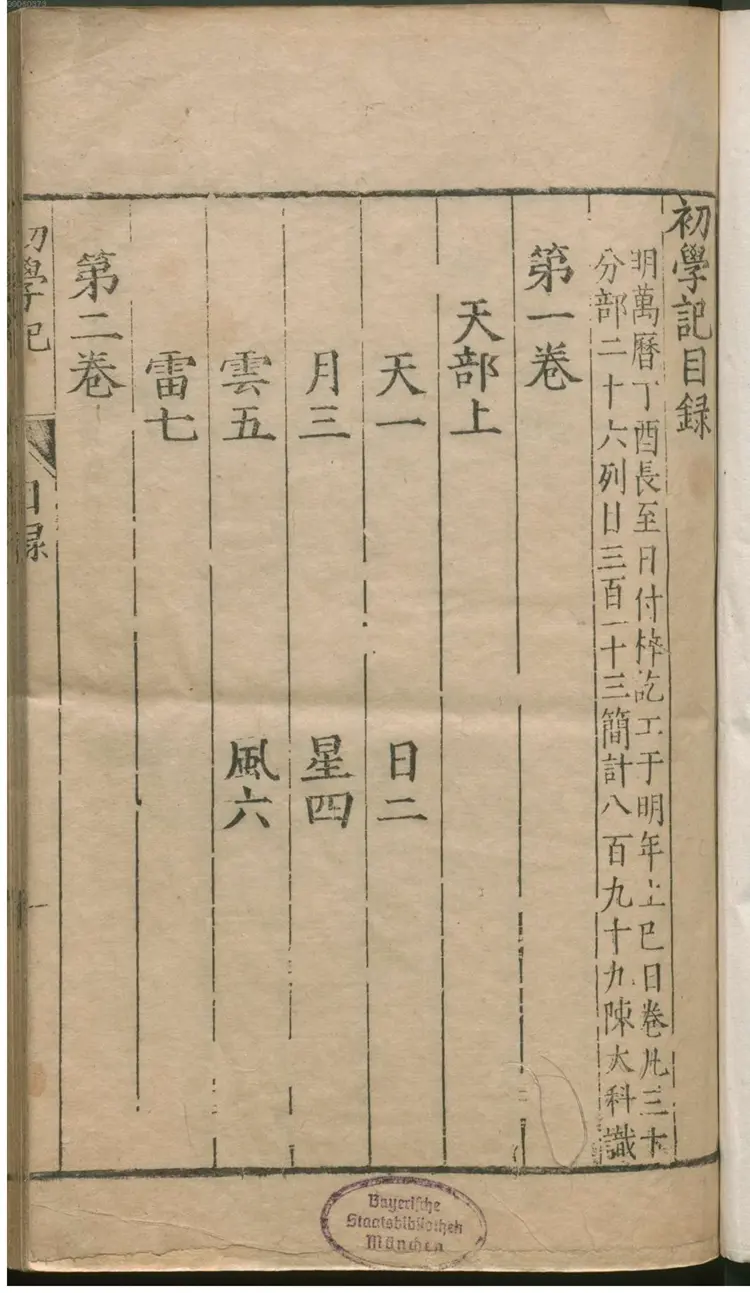 初學記目録
明萬曆丁酉長至日付梓訖工于明年上巳日卷凡三十
分部二十六列目三百一十三簡計八百九十九陳大科識
第一卷
天部上
天一 日二
月三 星四
雲五 風六
雷七
第二卷
初學記 目録 一
Bayerische
Staatsbibliothek
München